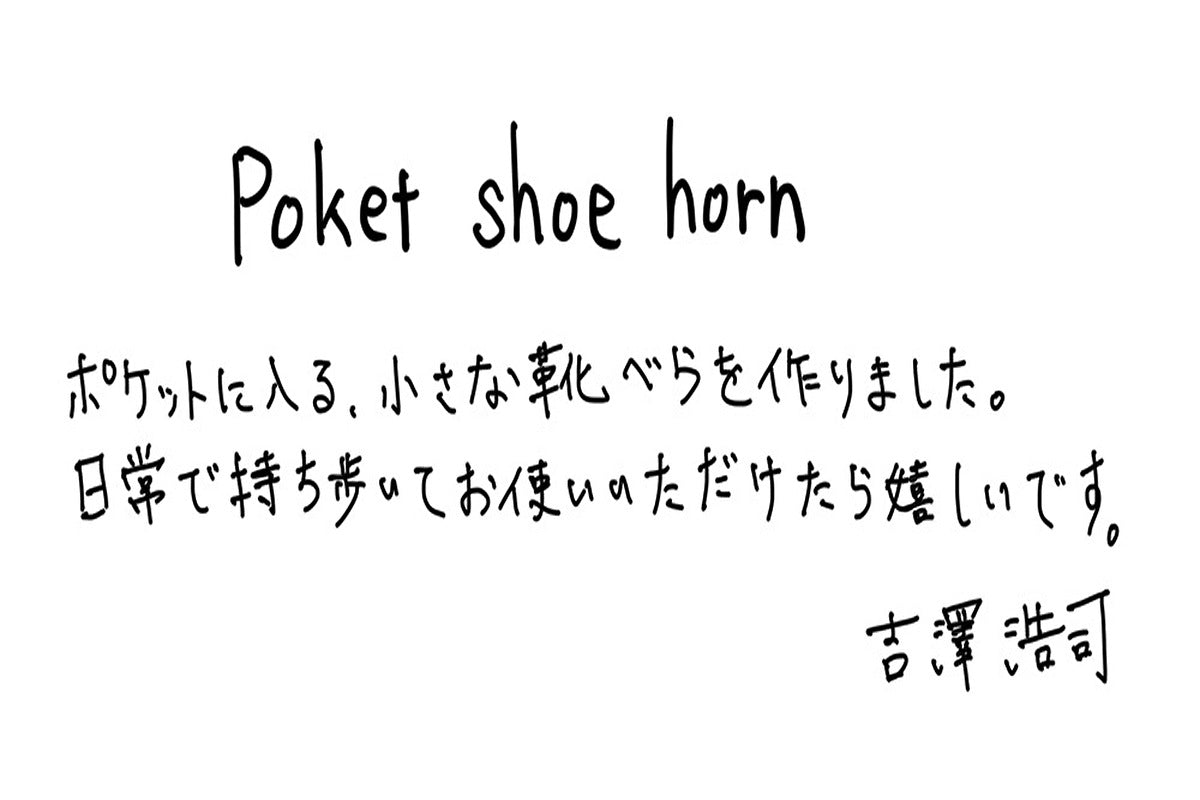 Poket shoe horn
ポケットに入る、小さな靴べらを作りました。
日常で持ち歩いてお使いいただけたら嬉しいです。
吉澤 浩司